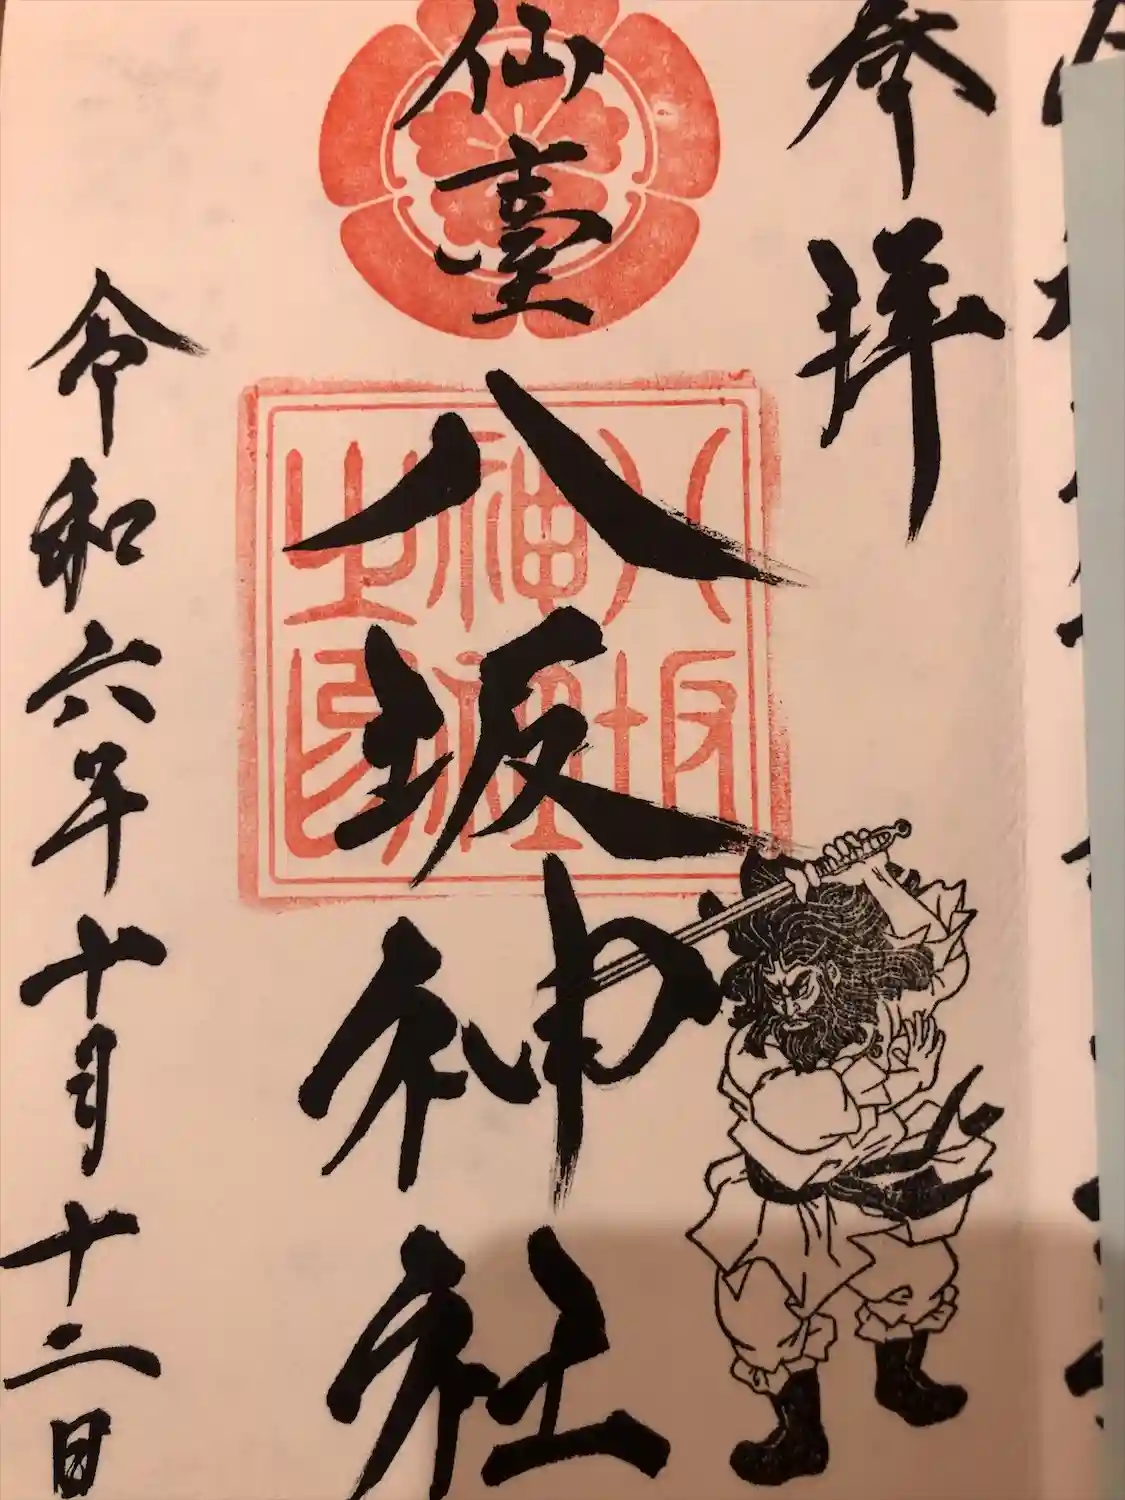 参拝
仙臺
八坂神社
八坂
神社
之印
令和六年十月十二日